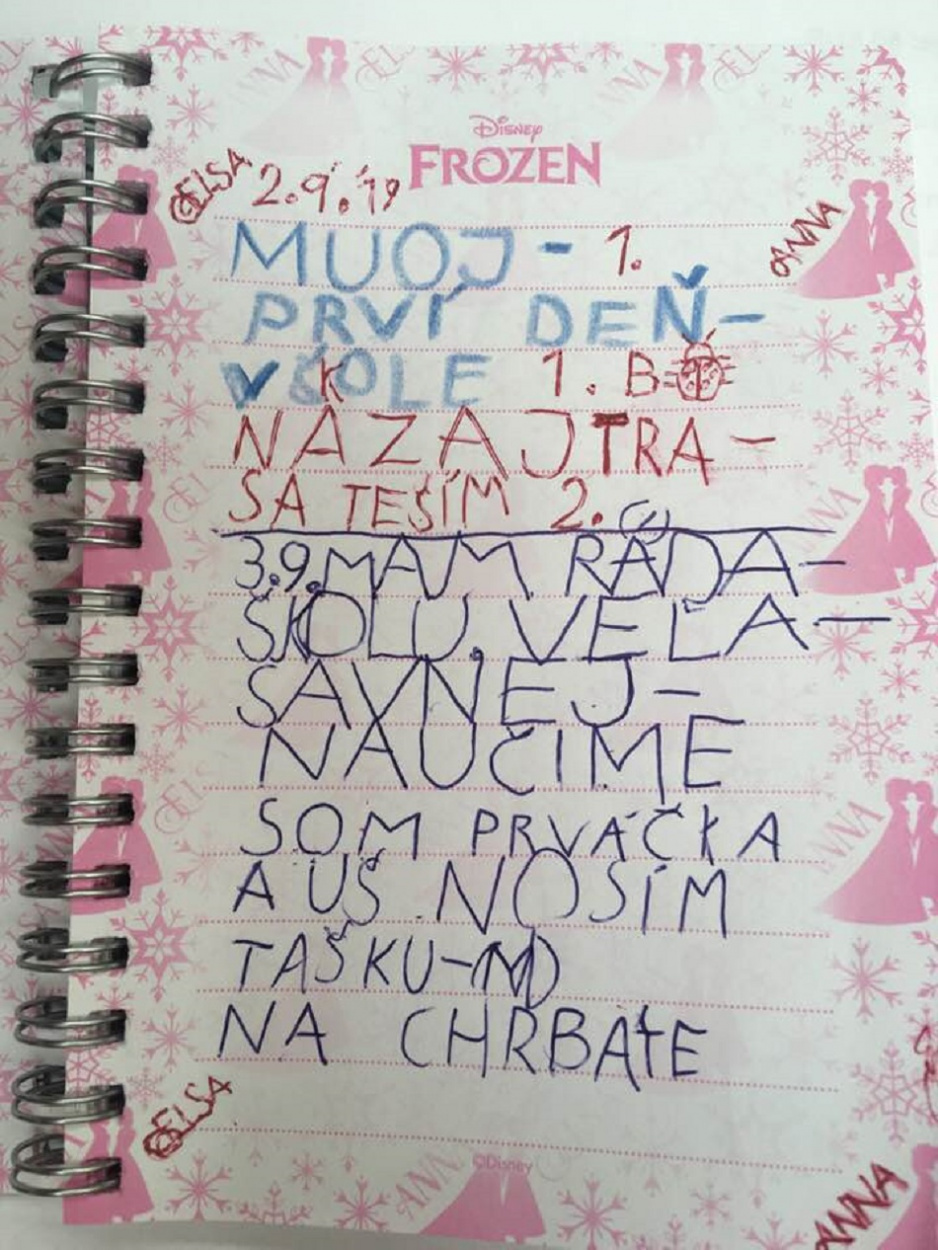 Disney
FROZEN
ELSA 2.9.19
ANNA
MUOJ - 1.
PRVÍ DEŇ-
V ŠKOLE 1. B
NAZAJTRA -
SA TEŠÍM 2.
3.9. MÁM RÁDA-
ŠKOLU. VEĽA-
SAVNEJ-
NAUČIME
SOM PRVÁČKA
A UŠ NOSÍM
TAŠKU-
NA CHRBÁTE
ELSA
©Disney
ANNA